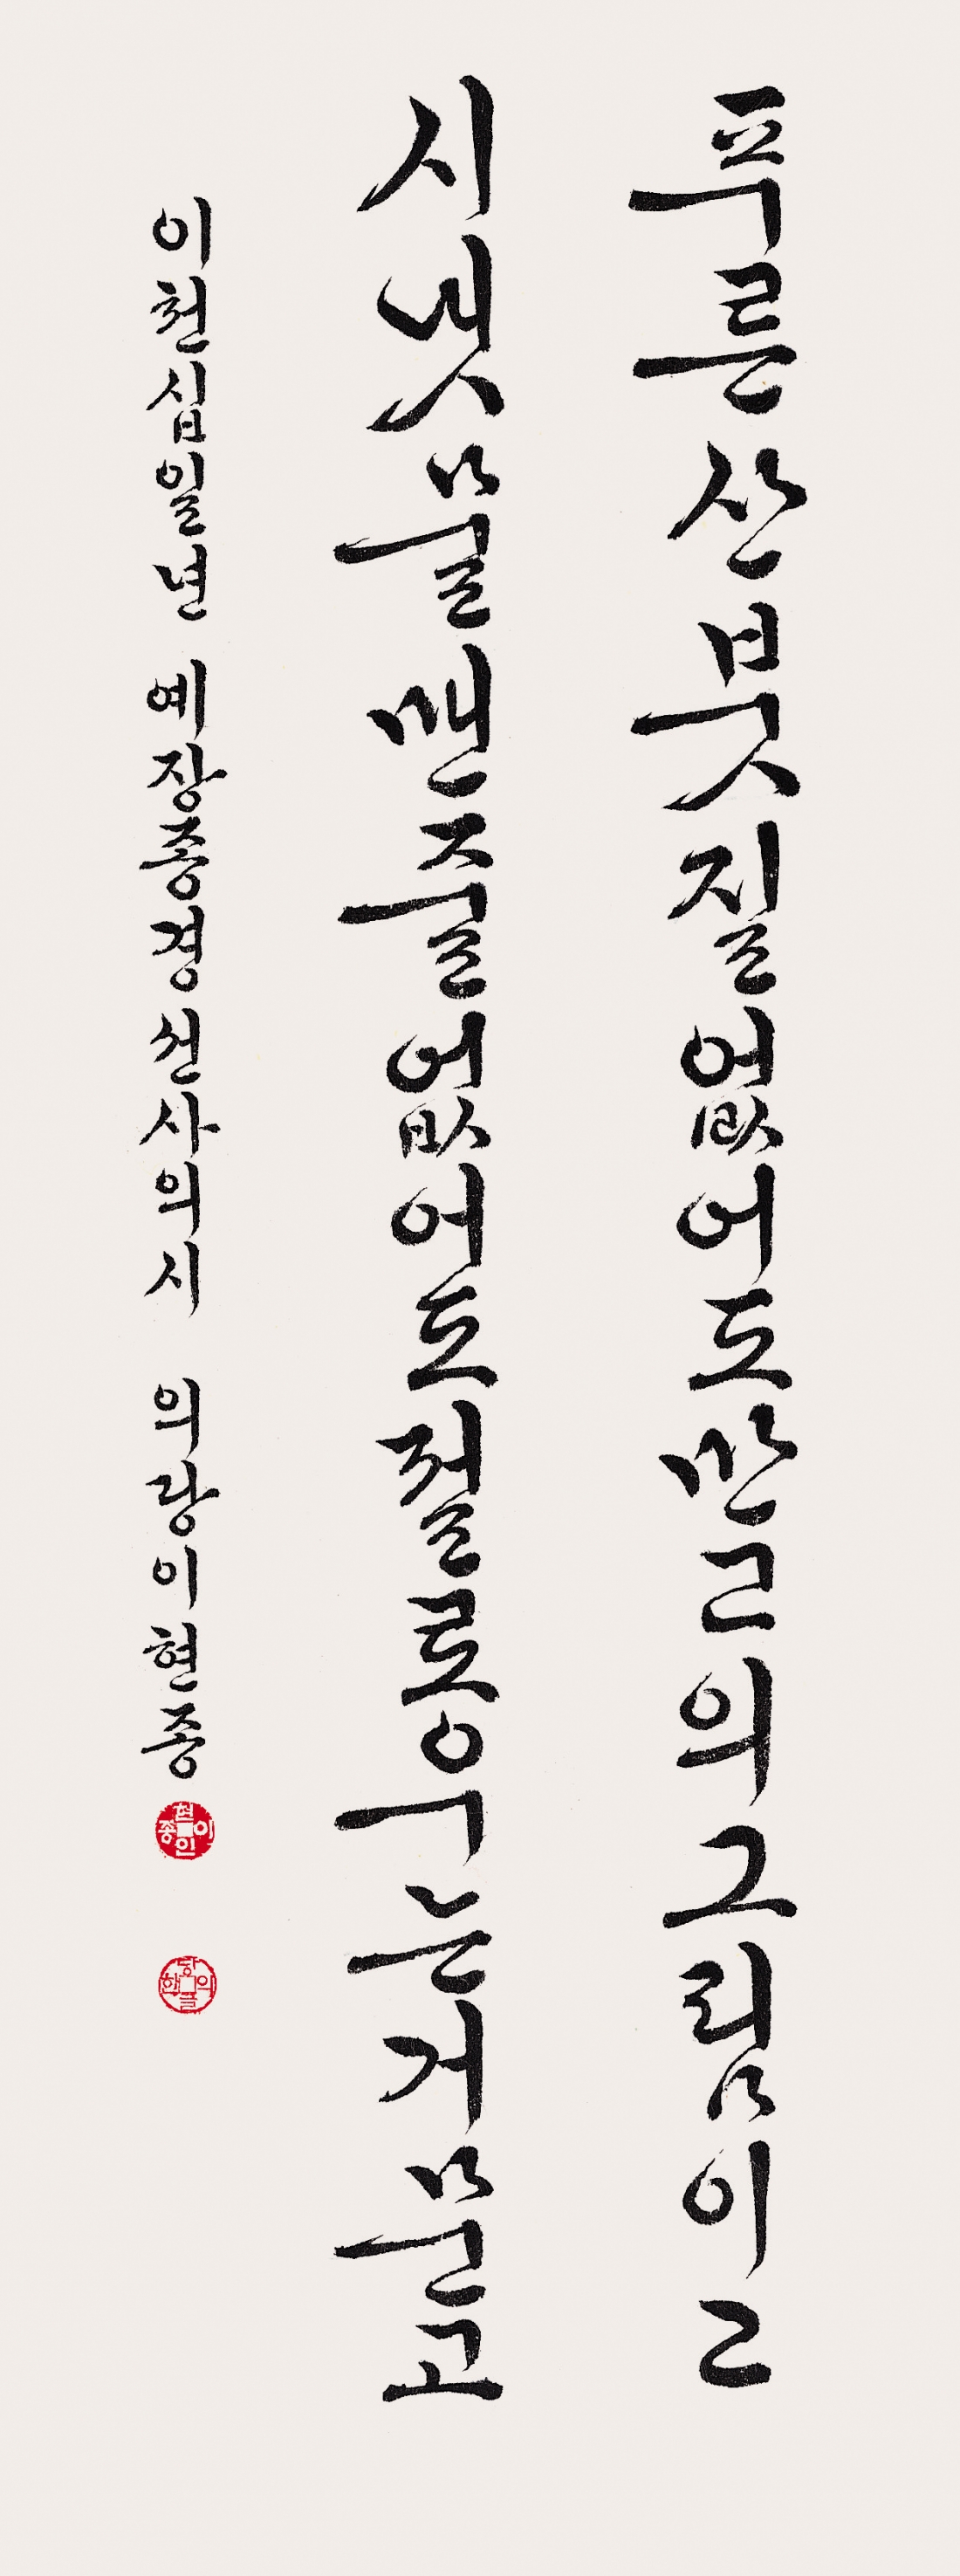 푸른산붓질없어도만고의그림이고
시냇물맨줄없어도절로우는거문고
이천십일년 예장종경선사의시 의당이현종
이현종인
의당한글